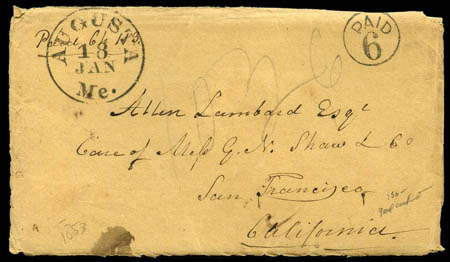 AUGUSTA
18
JAN
Me.
PAID
6
Allen Lambard Esqr
Care of Mess G. N. Shaw & Co
San Francisco
California
1853